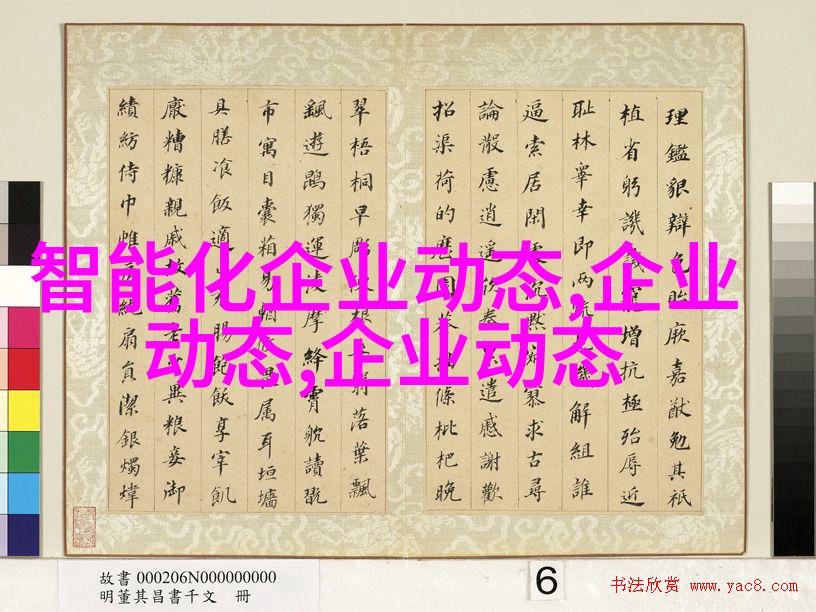 理鑑貌辯色貽厥嘉猷勉其祗
植省躬譏誡寵增抗極殆辱近
耻林睾幸即兩疏機解組誰
逼索居閑處沉默寥求古尋
論散慮逍遥欣奏遣慼謝歡
招渠荷的歷園莽抽條枇杷晚
翠梧桐早彫根翳落葉飄
颻遊鵾獨運凌摩絳霄躭讀翫
市寓目囊箱易輶畏属耳垣墻
具膳飡飯適腸飽飫享宰飢
厭糟糠親戚故舊老異粮妾御
績紡侍巾帷房紈扇員潔銀燭煒
智能化企业动态,企业
动态,企业动态
故書 000206N000000000
明董其昌書千文 冊
6
书法欣赏 www.yac8.com